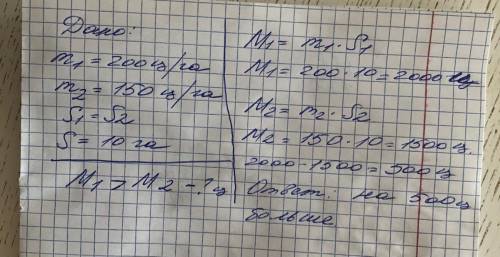 Дано:
m1 = 200 ц/га
m2 = 150 ц/га
S1 = S2
S = 10 га
M1 > M2 - ? ц
M1 = m1 · S1
M1 = 200 · 10 = 2000 ц
M2 = m2 · S2
M2 = 150 · 10 = 1500 ц.
2000 - 1500 = 500 ц
Ответ: на 500 ц
больше